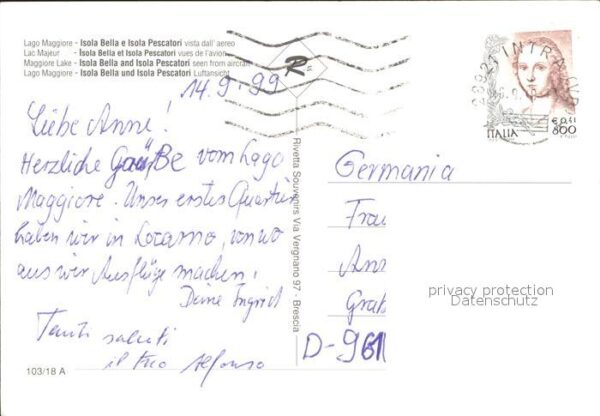 Lago Maggiore - Isola Bella e Isola Pescatori vista dall' aereo
Lac Majeur - Isola Bella et Isola Pescatori vues de l'avion
Maggiore Lake - Isola Bella and Isola Pescatori seen from aircraft
Lago Maggiore - Isola Bella und Isola Pescatori Luftansicht
R
14.9.99
Liebe Anne!
Herzliche Grüße vom Lago
Maggiore. Unser erstes Quartier
haben wir in Locarno, von wo
aus wir Ausflüge machen.
Deine Ingrid
Tanti saluti
il tuo Alfonso
103/18 A
Rivetta Souvenirs Via Vergnano 97 - Brescia
28921 INTRA
ITALIA
€ 0,41
800
Germania
Frau
Ann
Grat
D-961
privacy protection
Datenschutz